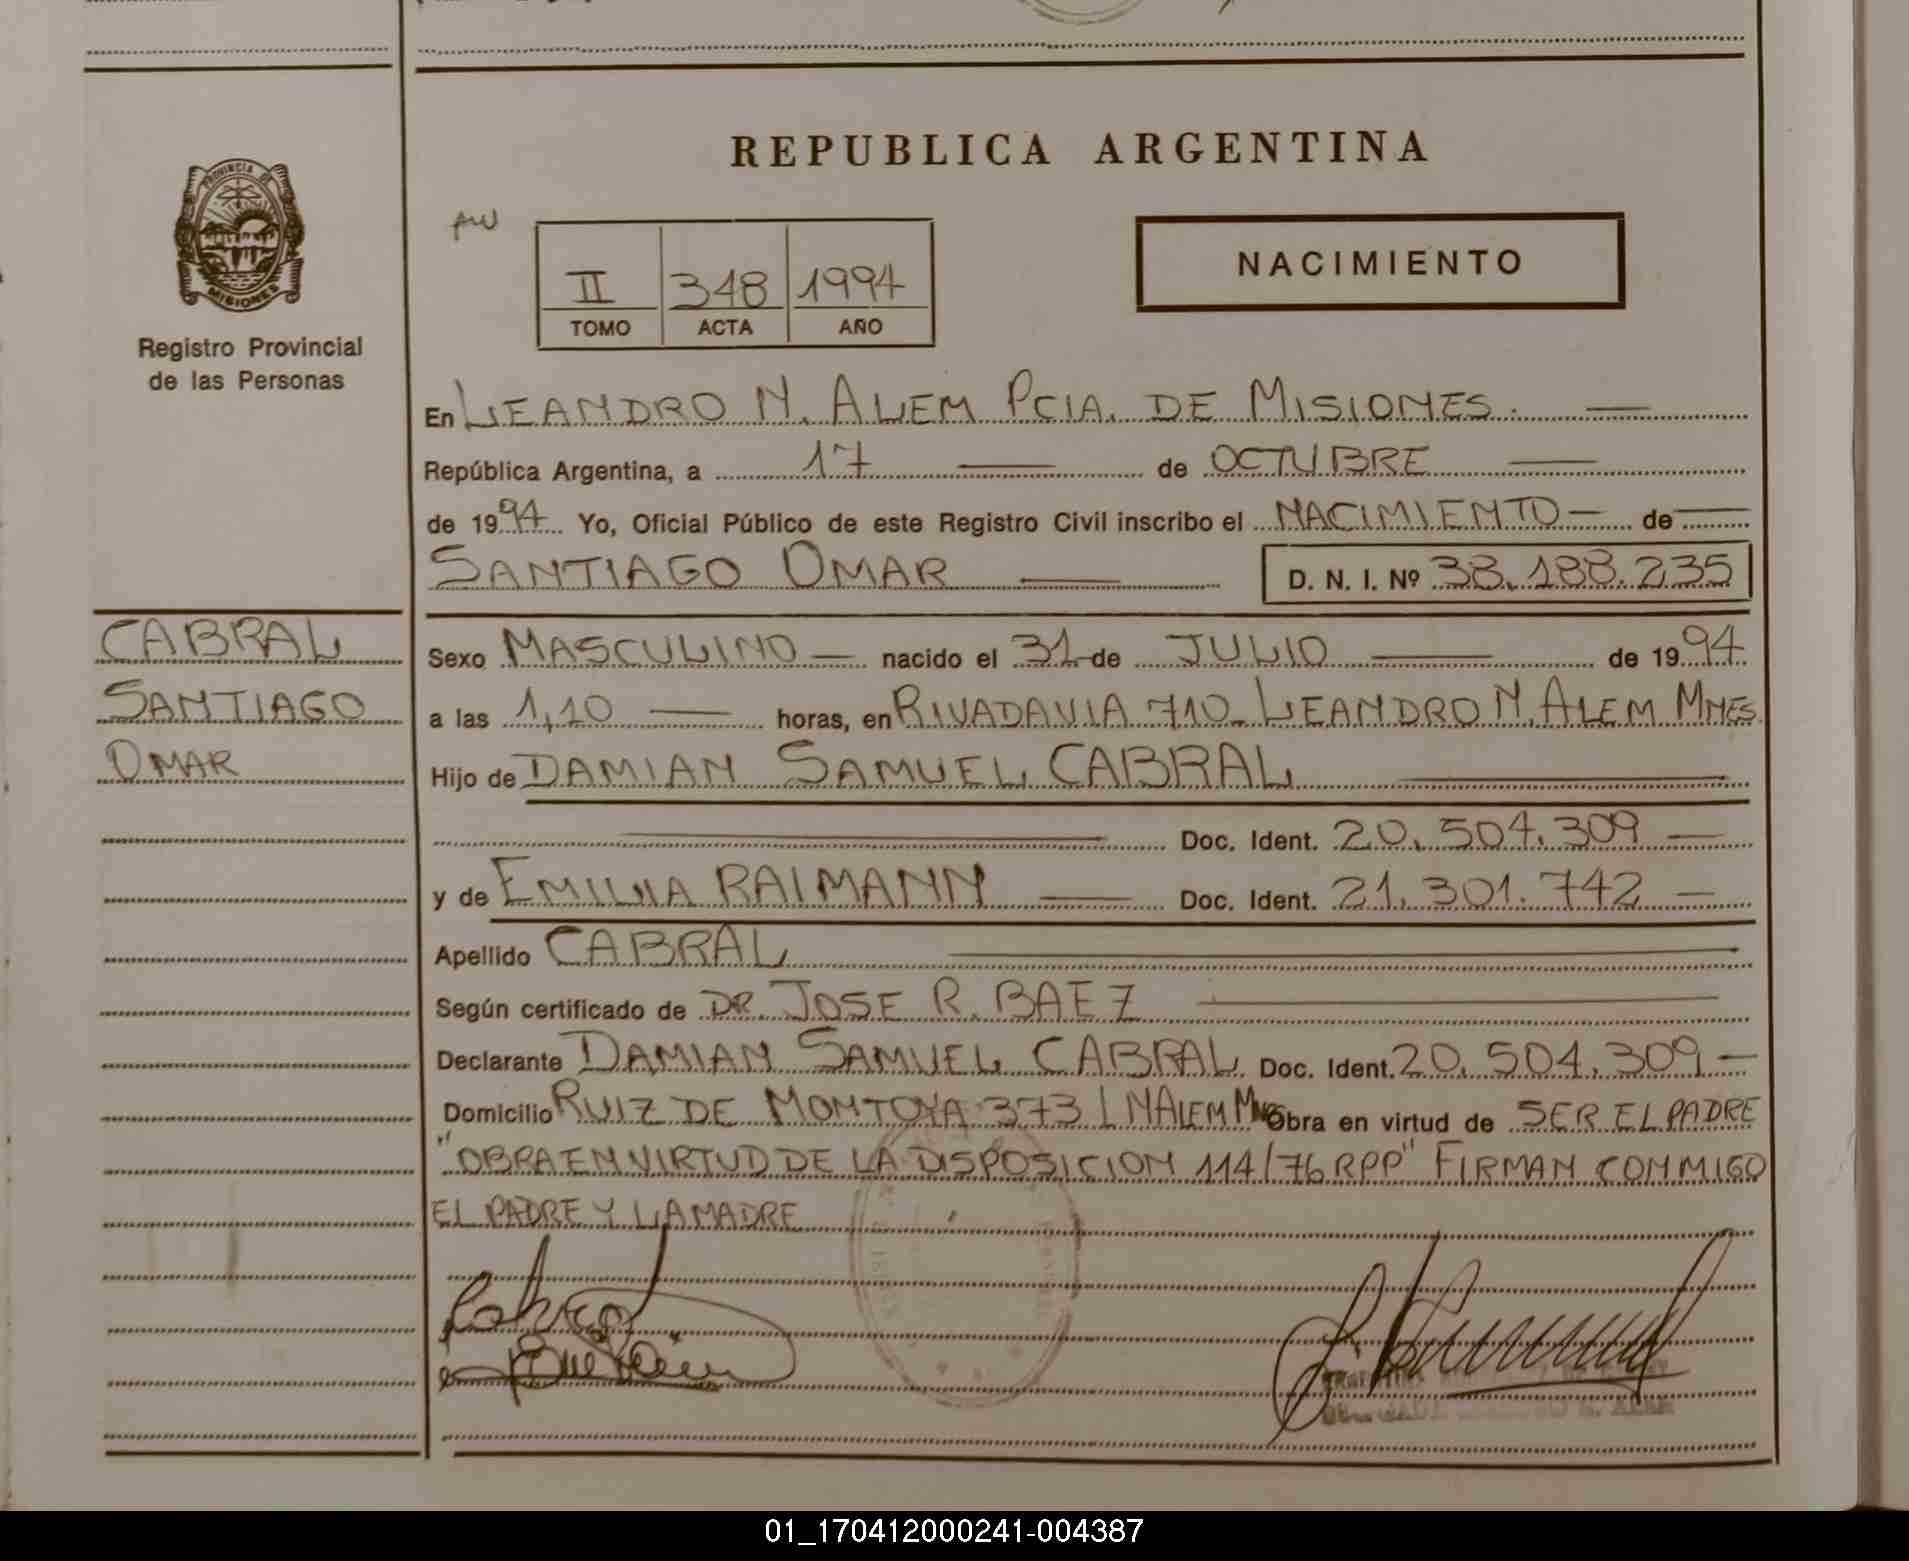 REPUBLICA ARGENTINA
PROVINCIA DE
MISIONES
Registro Provincial
de las Personas
II 348 1994
TOMO ACTA AÑO
NACIMIENTO
En LEANDRO N. ALEM PCIA. DE MISIONES.
República Argentina, a 17 de OCTUBRE
de 1994 Yo, Oficial Público de este Registro Civil inscribo el NACIMIENTO de
SANTIAGO OMAR D. N. I. Nº 38.188.235
CABRAL
SANTIAGO
OMAR
Sexo MASCULINO nacido el 31 de JULIO de 1994
a las 1,10 horas, en RIVADAVIA 710 - LEANDRO N. ALEM MNES.
Hijo de DAMIAN SAMUEL CABRAL
Doc. Ident. 20.504.309
y de EMILIA RAIMANN Doc. Ident. 21.301.742
Apellido CABRAL
Según certificado de DR. JOSE R. BAEZ
Declarante DAMIAN SAMUEL CABRAL Doc. Ident. 20.504.309
Domicilio RUIZ DE MONTOYA 373 L N ALEM MNES Obra en virtud de SER EL PADRE
"OBRA EN VIRTUD DE LA DISPOSICION 114/76 RPP" FIRMAN CONMIGO
EL PADRE Y LA MADRE
01_170412000241-004387